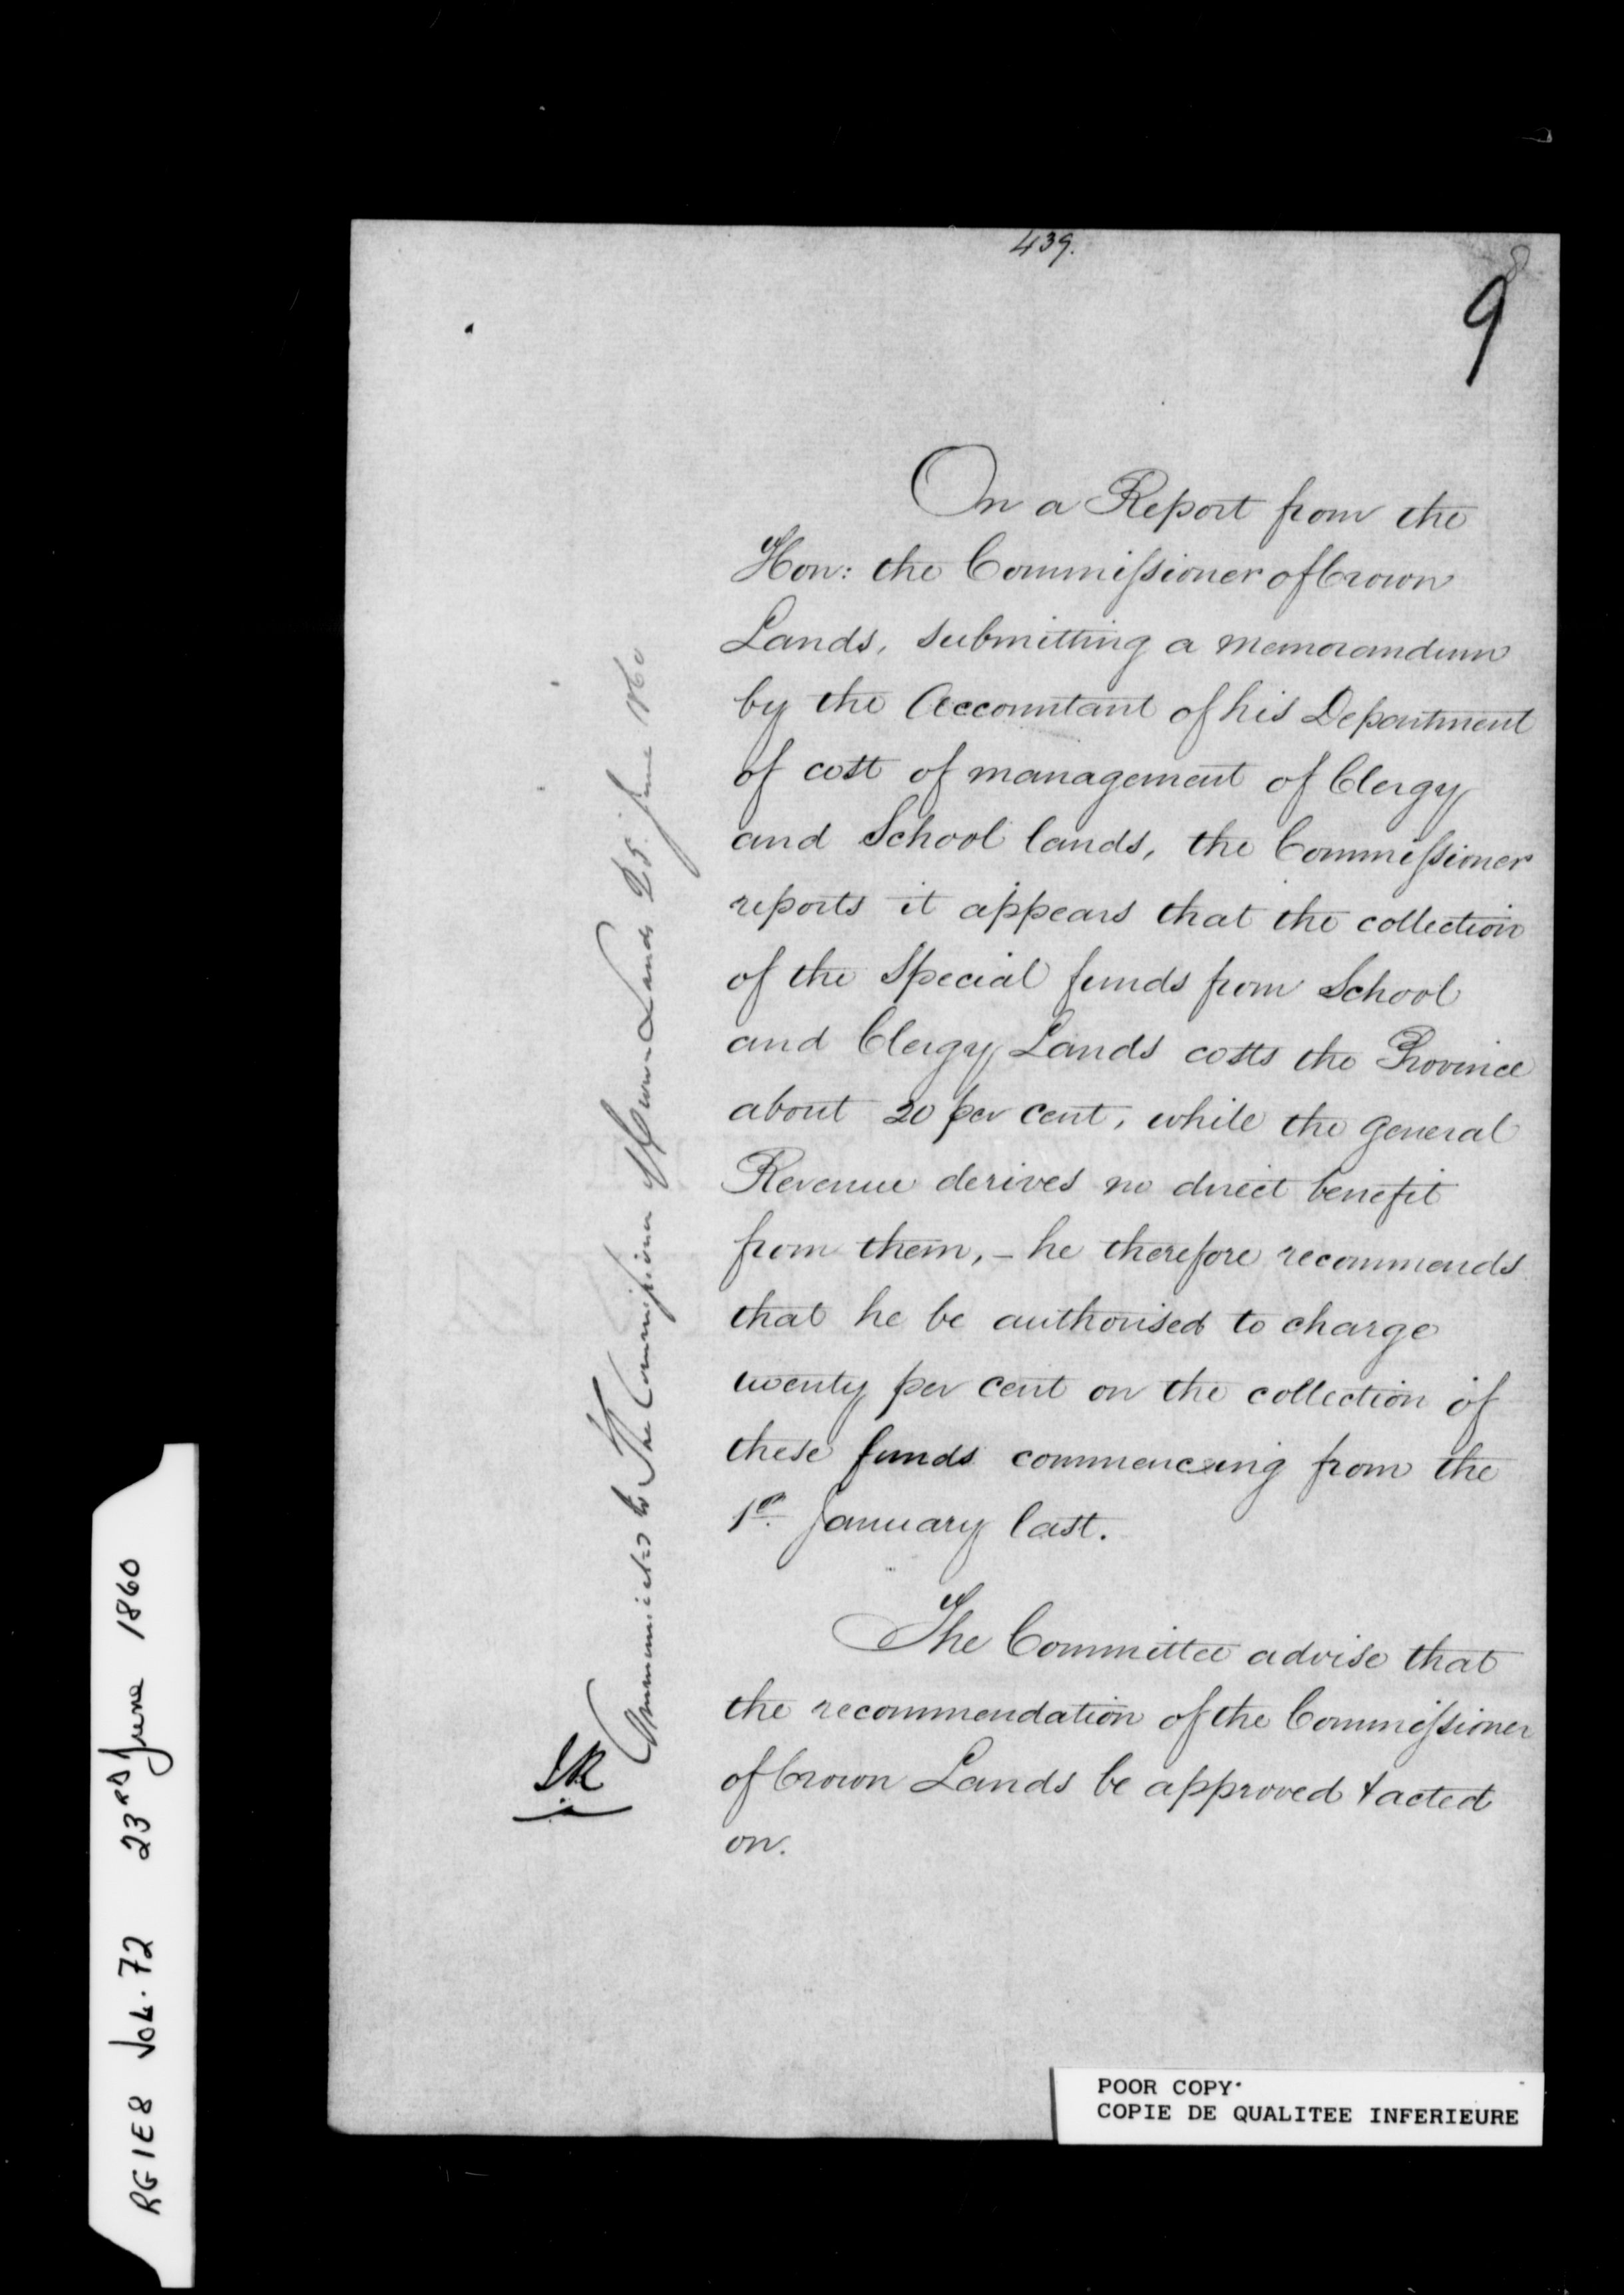 439.
9
On a Report from the
Hon: the Commissioner of Crown
Lands, submitting a memorandum
by the Accountant of his Department
of cost of management of Clergy
and School lands, the Commissioner
reports it appears that the collection
of the Special funds from School
and Clergy Lands costs the Province
about 20 per cent, while the general
Revenue derives no direct benefit
from them, - he therefore recommends
that he be authorised to charge
twenty per cent on the collection of
these funds commencing from the
1st January last.
The Committee advise that
the recommendation of the Commissioner
of Crown Lands be approved & acted
on.
Communicated to The Commissioner of Crown Lands 25. June 1860
RG1E8 VOL. 72 23RD June 1860
POOR COPY
COPIE DE QUALITEE INFERIEURE